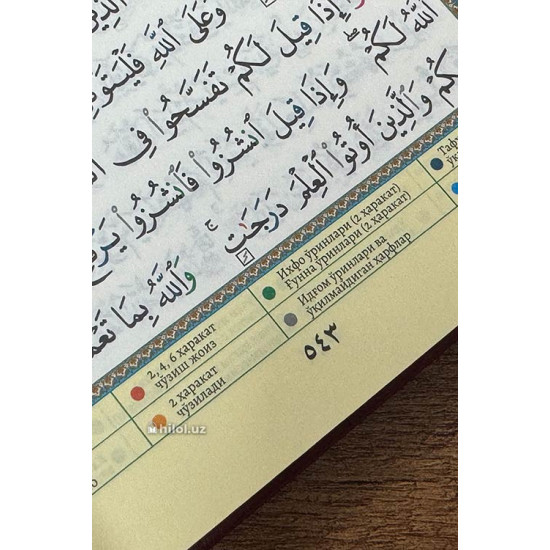 وَعَلَى ٱللَّهِ
إِذَا قِيلَ لَكُمْ تَفَسَّحُوا۟ فِى
ٱللَّهُ لَكُمْ ۖ وَإِذَا قِيلَ ٱنشُزُوا۟ فَٱنشُزُوا۟
وَٱلَّذِينَ أُوتُوا۟ ٱلْعِلْمَ دَرَجَـٰتٍ ۚ
وَٱللَّهُ بِمَا
2, 4, 6 ҳаракат
чўзиш жоиз
2 ҳаракат
чўзилади
Ихфо ўринлари (2 ҳаракат)
Ғунна ўринлари (2 ҳаракат)
Идғом ўринлари ва
ўқилмайдиган ҳарфлар
٥٤٣
hilol.uz